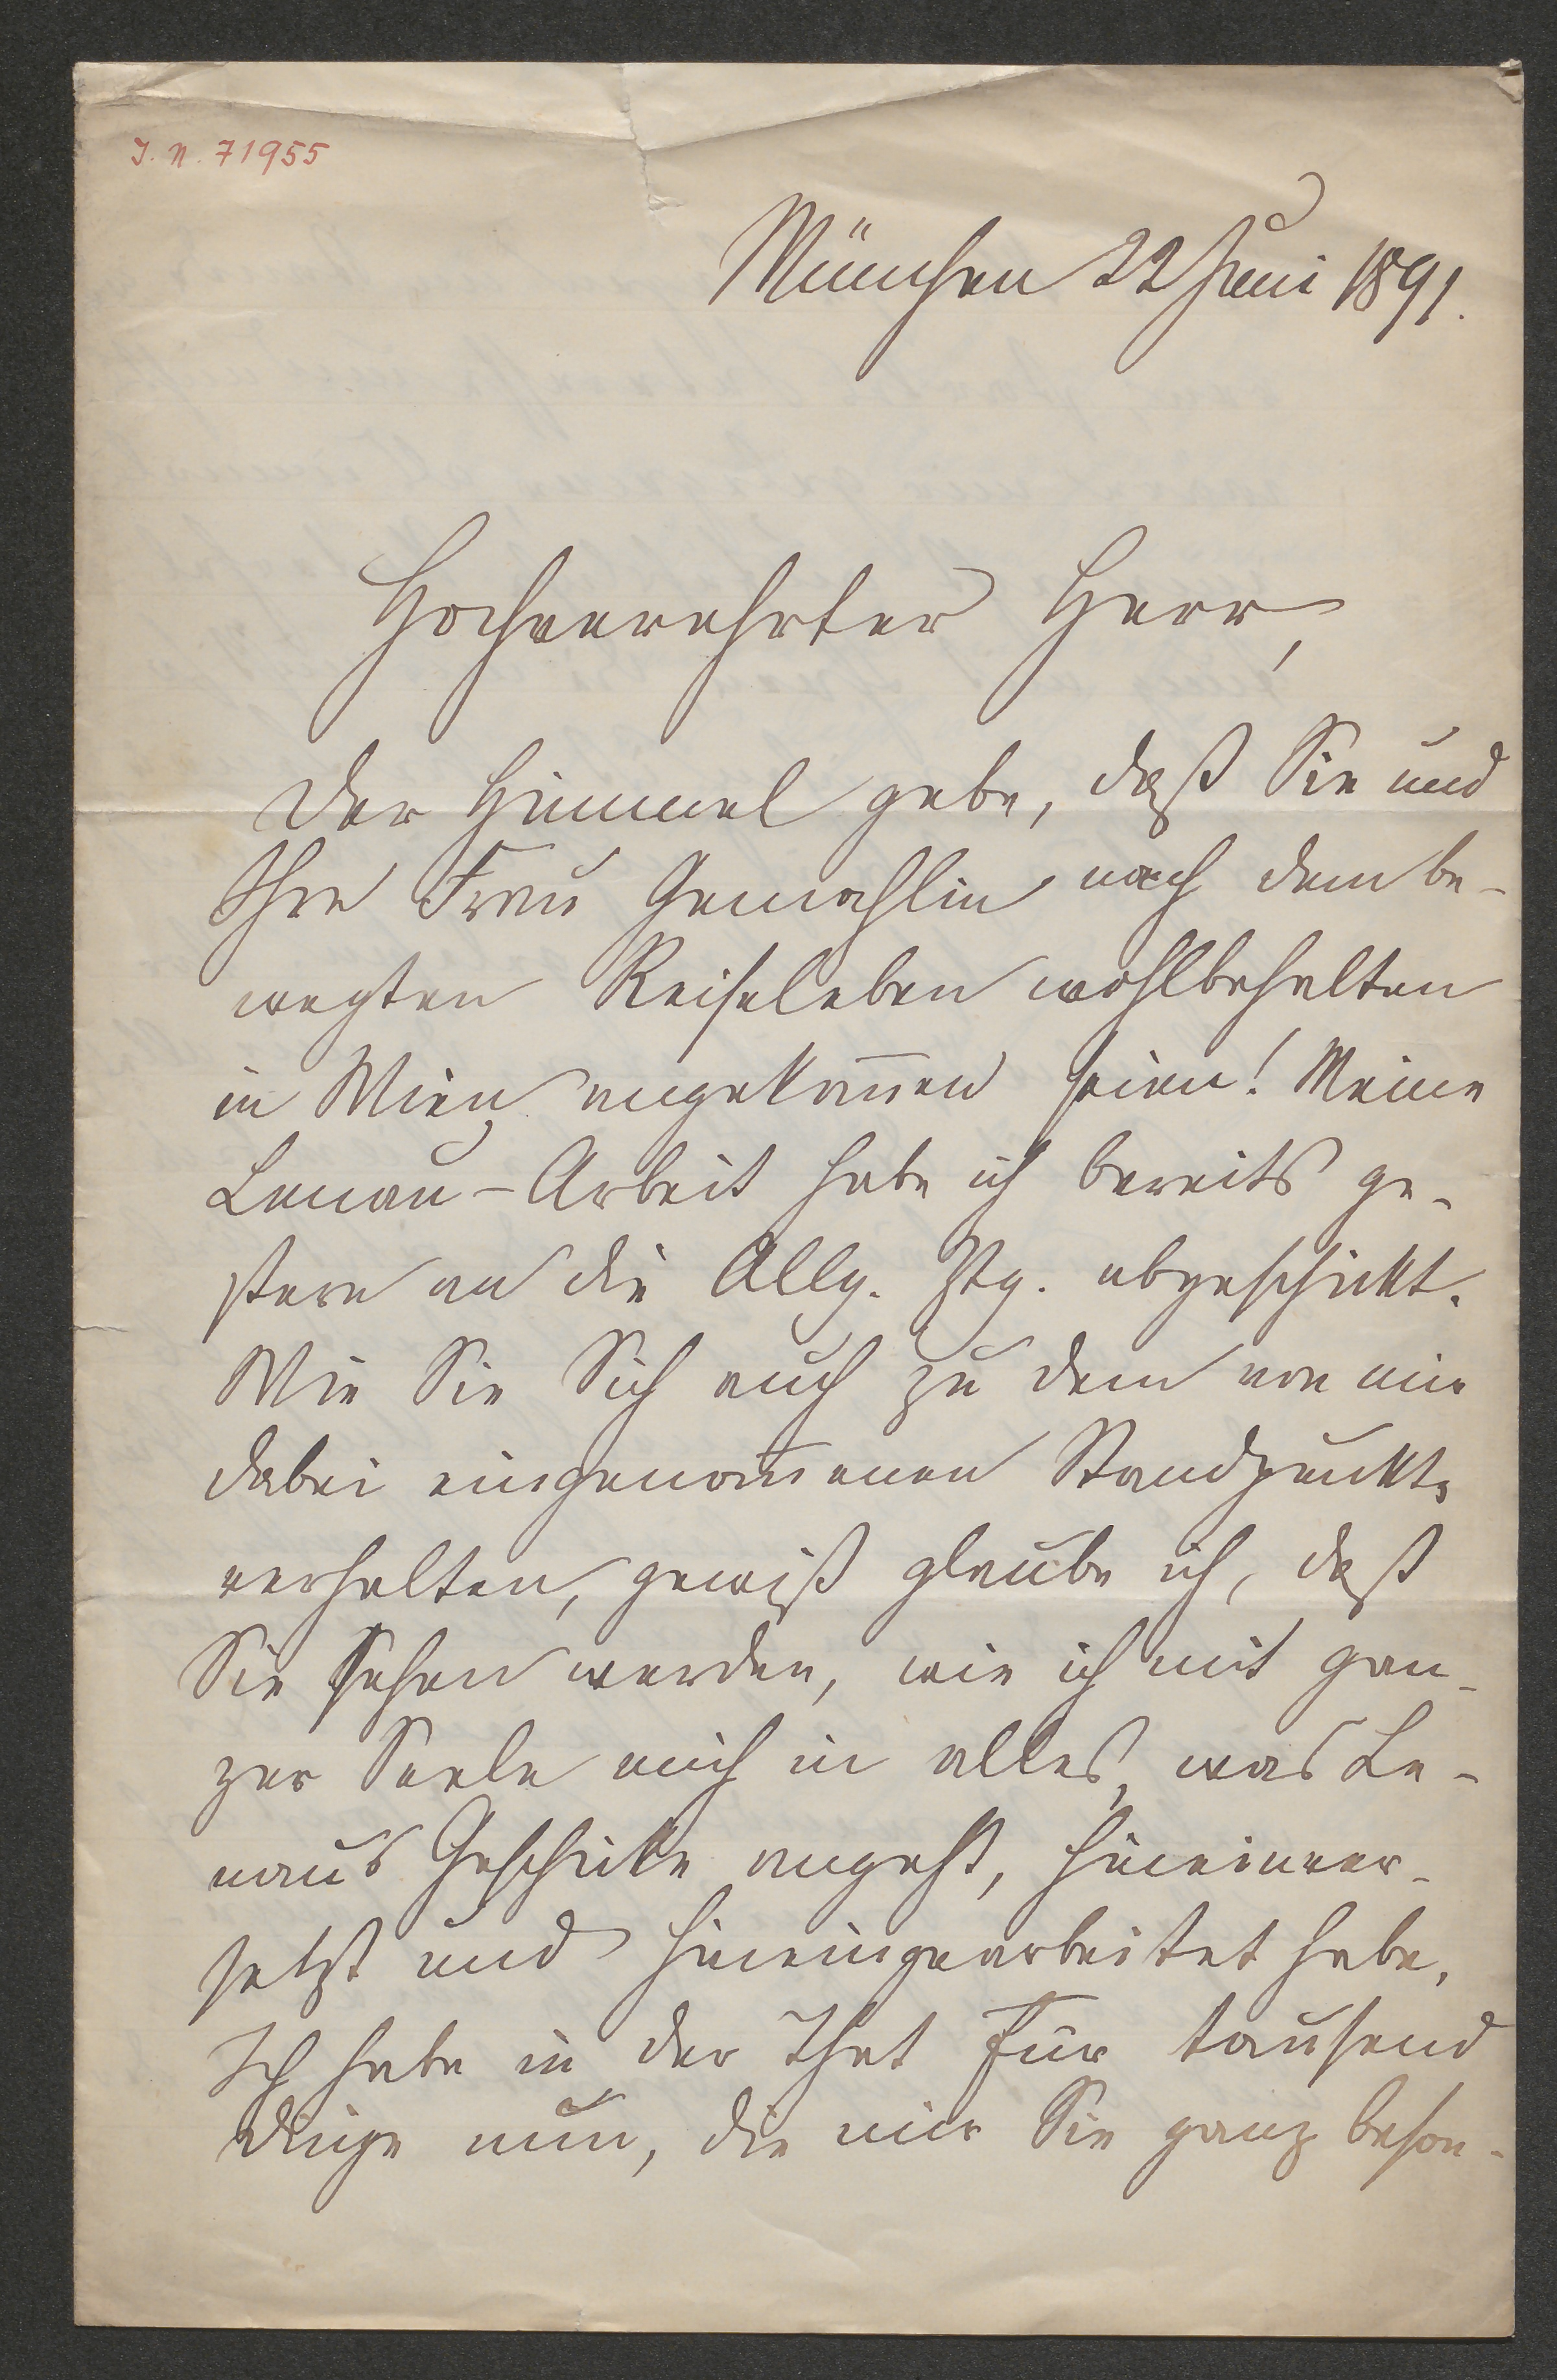 J. N. 71955
München 22 Juni 1891.
Hochverehrter Herr,
Der Himmel gebe, daß Sie und
Ihre Frau Gemahlin nach dem be-
wegten Reiseleben wohlbehalten
in Wien angekom̄en seien! Meine
Lenau-Arbeit habe ich bereits ge-
stern an die Allg. Ztg. abgeschickt.
Wie Sie Sich auch zu dem von mir
dabei eingenom̄enen Standpunkte
verhalten, gewiß glaube ich, daß
Sie sehen werden, wie ich mit gan-
zer Seele mich in alles, was Le-
naus Geschicke angeht, hineinver-
setzt und hineingearbeitet habe.
Ich habe in der That für tausend
Dinge nun, die mir Sie ganz beson-